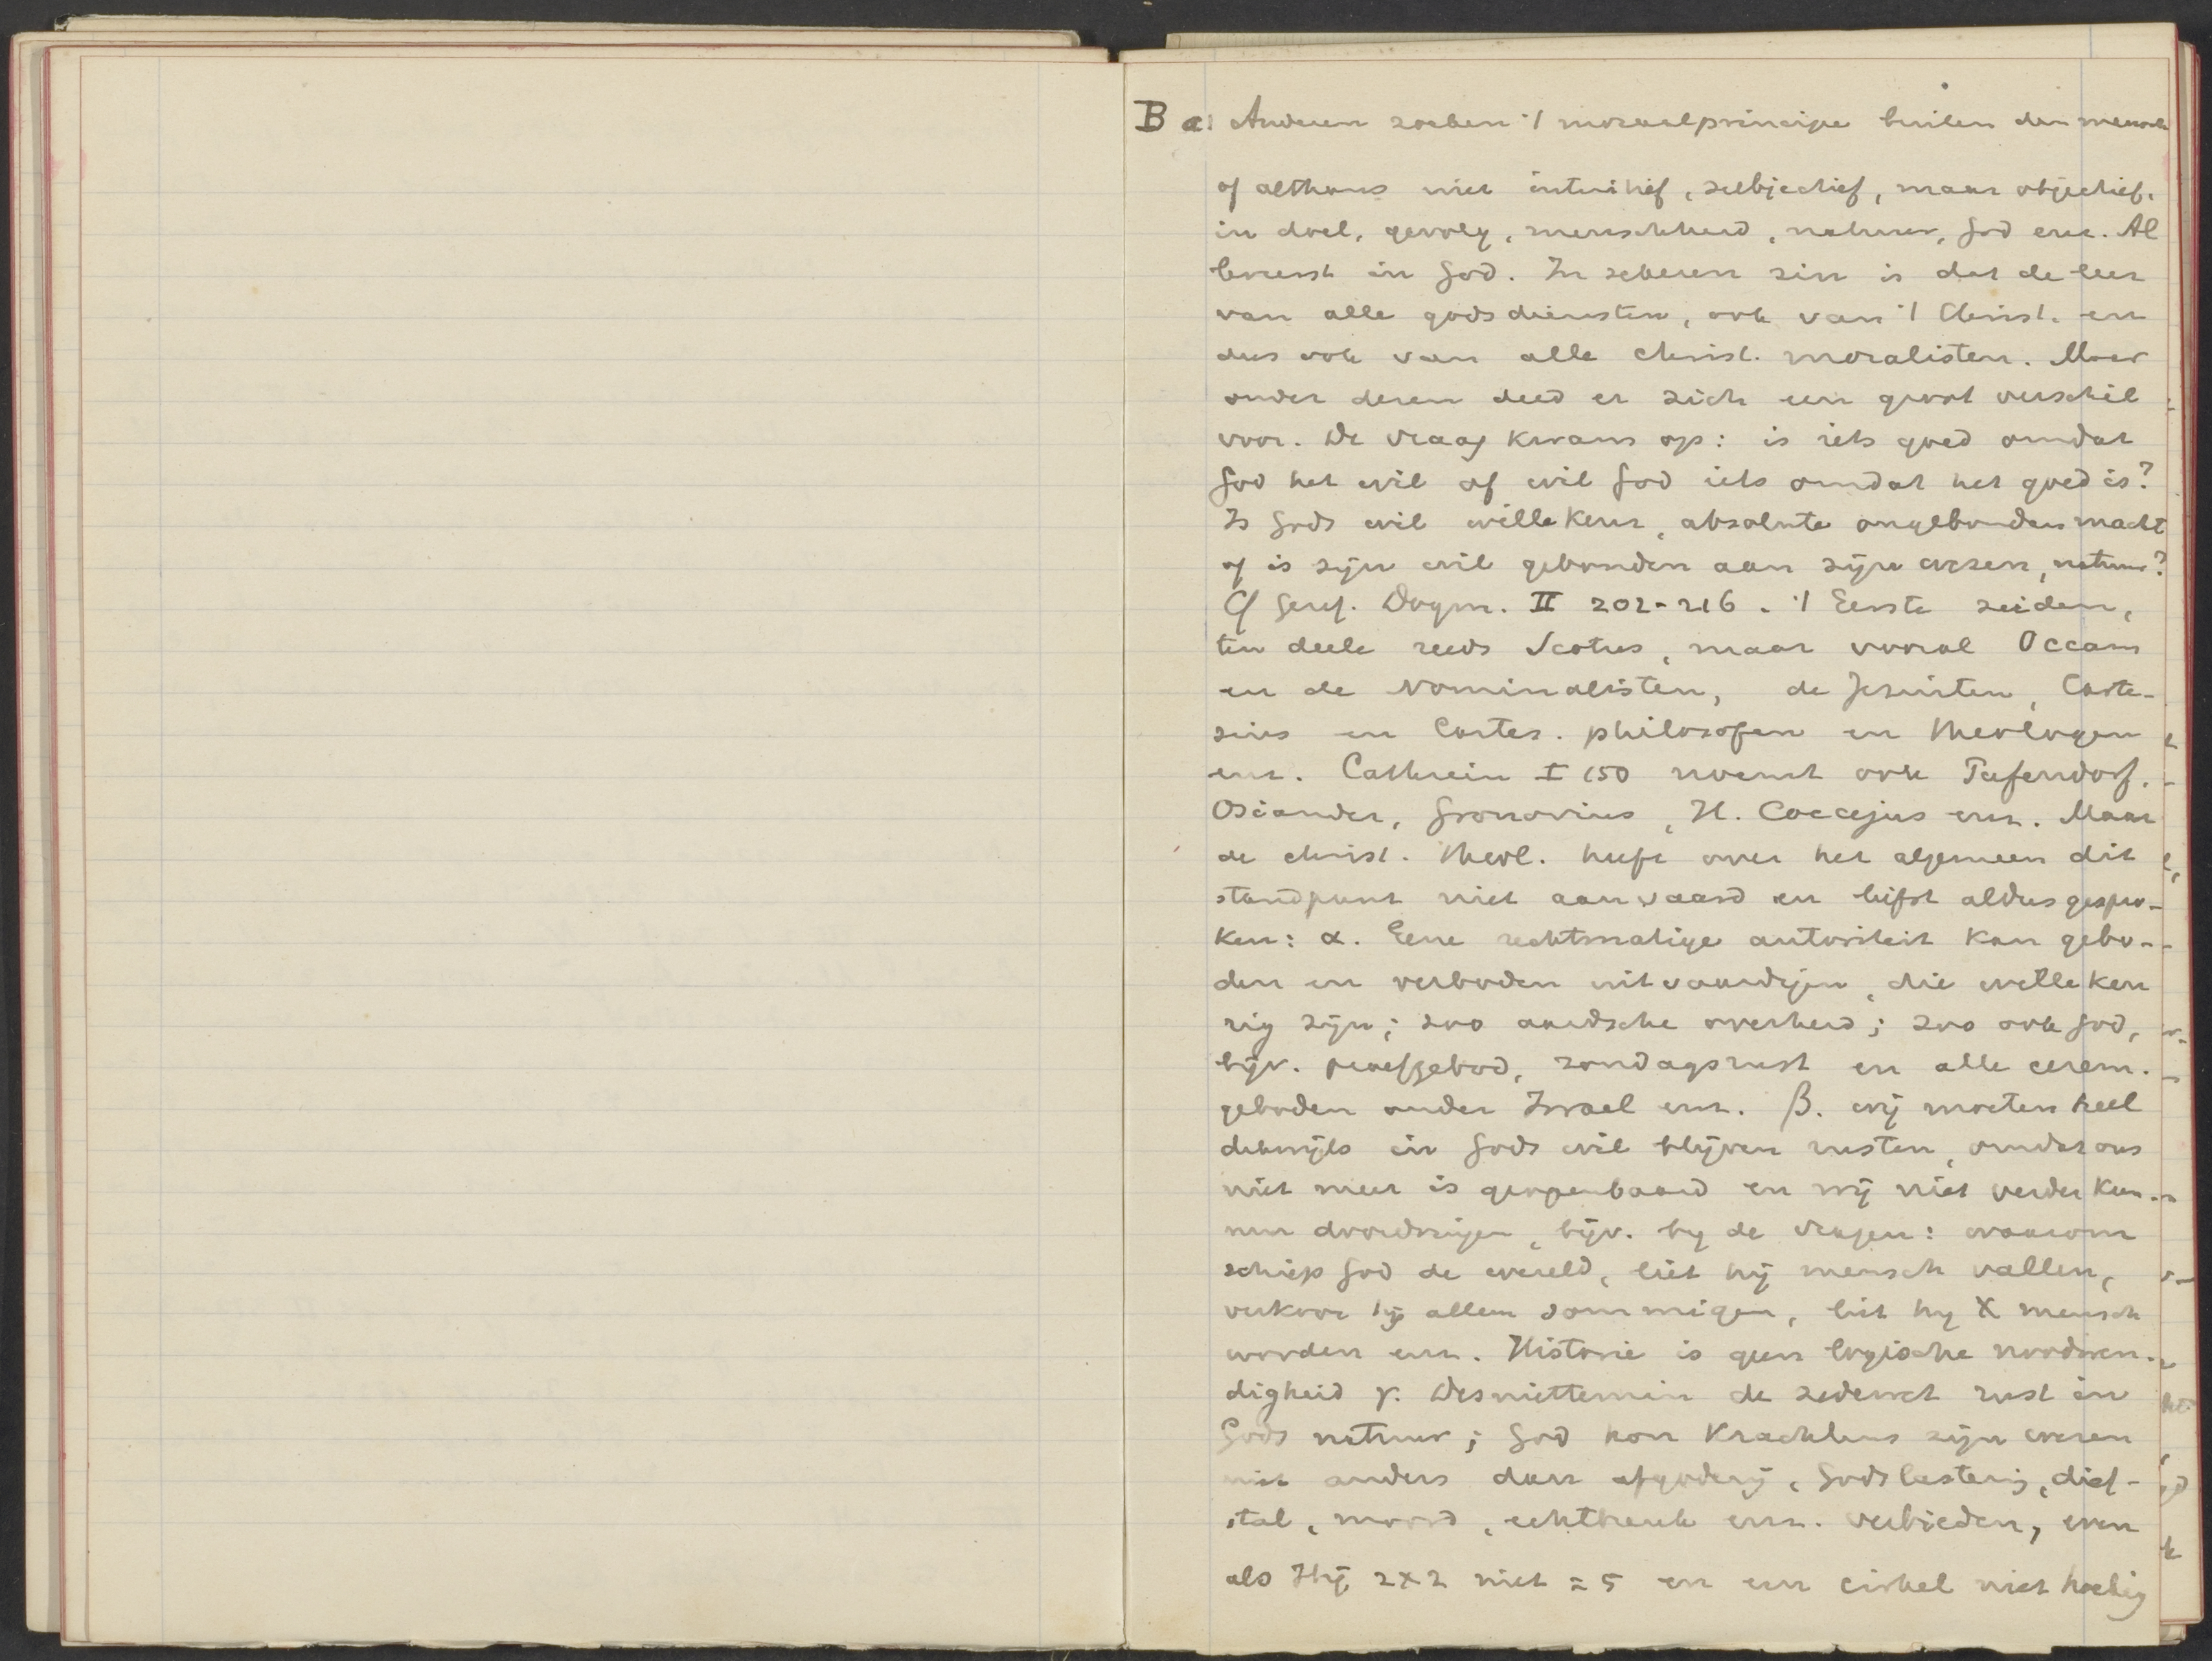 B a) Anderen zoeken 't moraalprincipe buiten den mensch
of althans niet intuitief, subjectief, maar objectief.
in doel, gevolg, menschheid, natuur, God enz. Al
bewust in God. In zekeren zin is dat de leer
van alle godsdiensten, ook van 't Christ. en
dus ook van alle christ. moralisten. Maar
onder dezen deed er zich een groot verschil
voor. De vraag kwam op: is iets goed omdat
God het wil of wil God iets omdat het goed is?
Is Gods wil willekeur, absolute ongebonden macht
of is zijn wil gebonden aan zijn wezen, natuur?
Cf Geref. Dogm. II 202-216. 't Eerste zeiden,
ten deele reeds Scotus, maar vooral Occam
en de Nominalisten, de Jezuiten, Carte-
sius en Cartes. philosofen en theologen
enz. Cathrein I 150 noemt ook Pufendorf.
Osiander, Gronovius, H. Coccejus enz. Maar
de christ. theol. heeft over het algemeen dit
standpunt niet aanvaard en liefst aldus gespro-
ken: α. Eene rechtmatige autoriteit kan gebo-
den en verboden uitvaardigen, die willekeu
rig zijn; zoo aardsche overheid; zoo ook God,
bijv. proefgebod, zondagsrust en alle cerem.
geboden onder Israel enz. β. wij moeten heel
dikwijls in Gods wil blijven rusten, omdat ons
niet meer is geopenbaard en wij niet verder kun-
nen doordringen, bijv. by de vragen: waarom
schiep God de wereld, liet hij mensch vallen,
verkoor hij alleen sommigen, liet hy X mensch
worden enz. Historie is geen logische noodwen-
digheid γ. Desniettemin de zedewet rust in
Gods natuur; God kon krachtens zijn wezen
niet anders dan afgoderij, Godslastering, dief-
stal, moord, echtbreuk enz. verbieden, even
als Hij 2x2 niet = 5 en een cirkel niet hoekig